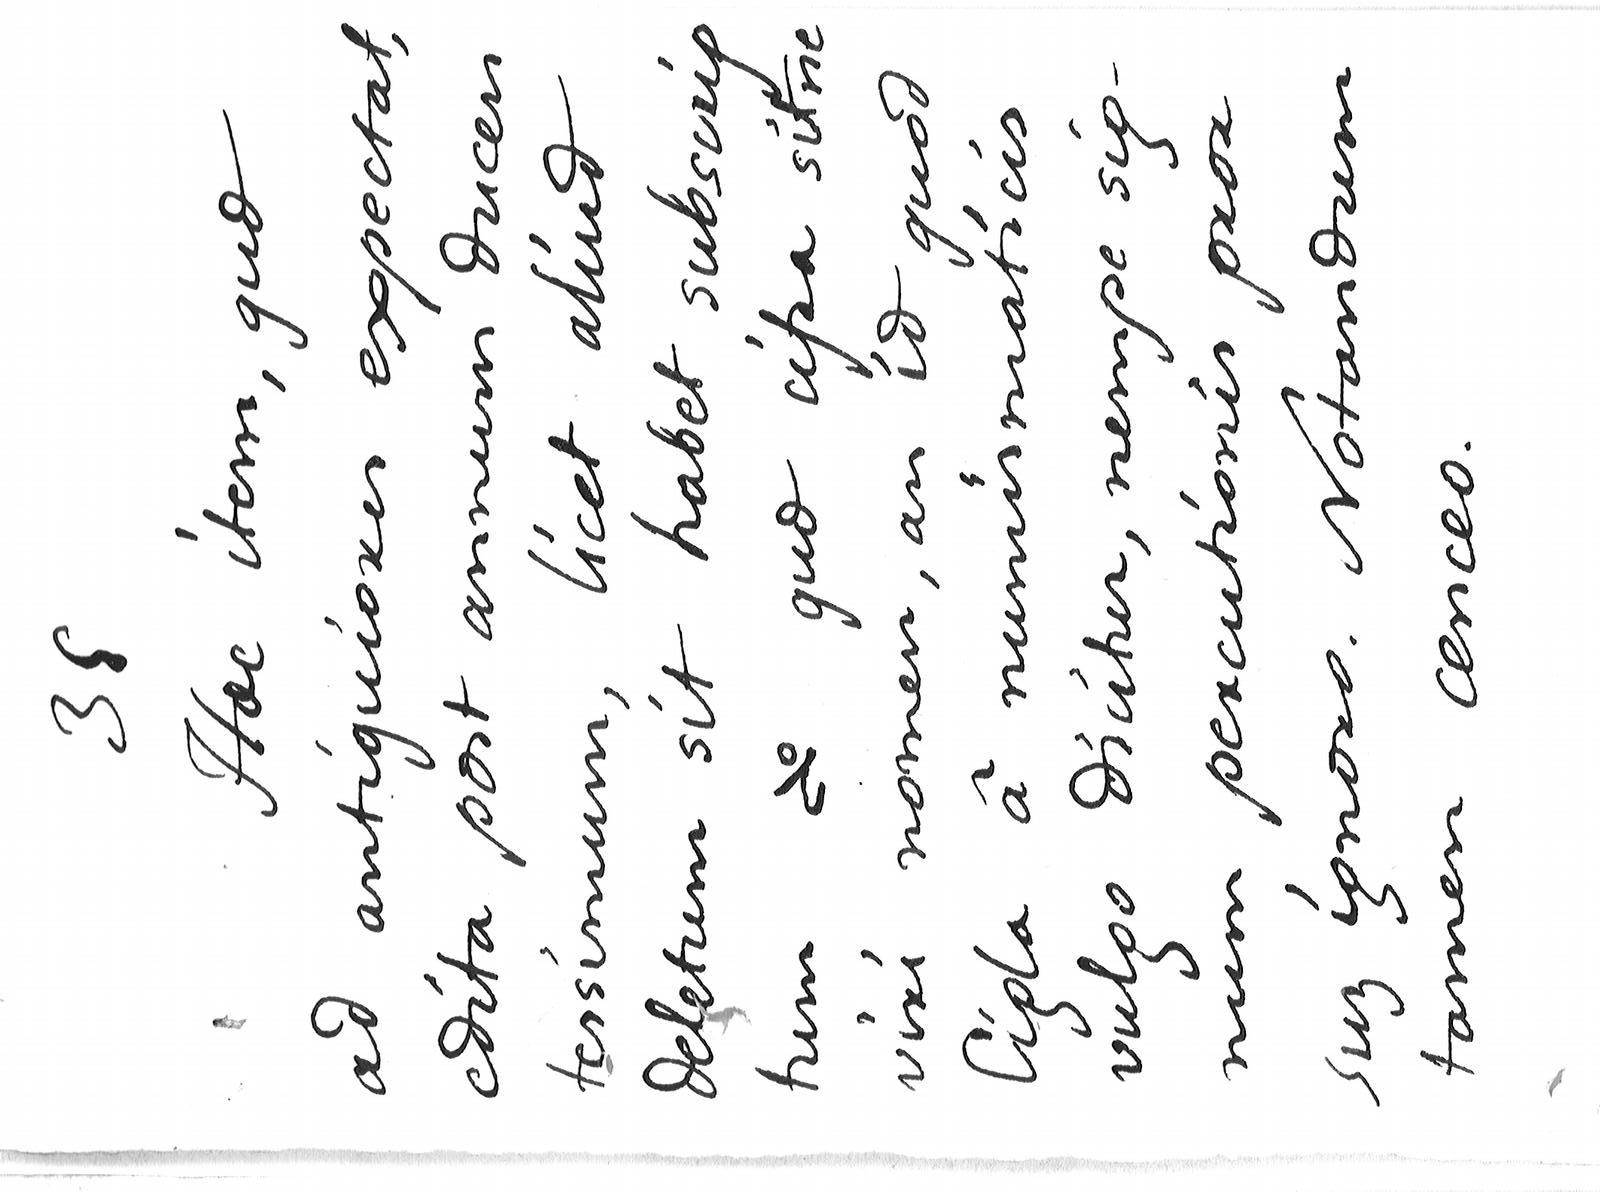 38
Hoc item, quod
ad antiquiores expectat,
edita post annum ducen
tesimum, licet aliud
deletum sit habet subscrip
tum & quod cifra sitne
viri nomen, an id quod
Cigla â numismaticis
vulgo dicitur, nempe sig-
num percutionis pror
sus ignoro. Notandum
tamen censeo.